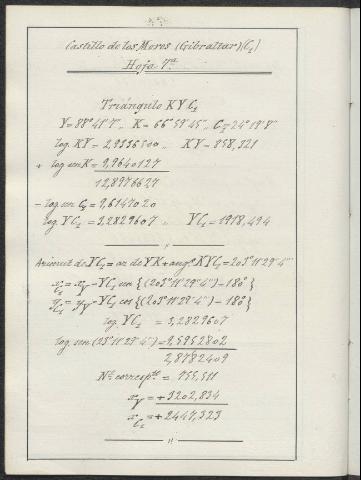 Castillo de los Moros (Gibraltar)(C₁)
Hoja 7ª
Triángulo K Y C₁
Y=88°41'7" „ K= 66°59'45" „ C₁=24°19'8"
log KY= 2,9336500 „ KY= 858,321
+ log sen K= 9,9640127
12,8976627
- log sen C₁= 9,6147020
log YC₁= 3,2829607 „ YC₁= 1918,494
Azimut de YC₁= az de YK+angº KYC₁=203°11'29"4'''
x_C₁= x_Y - YC₁ sen {(203°11'29"4''')-180°}
y_C₁= y_Y - YC₁ cos {(203°11'29"4''')-180°}
log YC₁ = 3,2829607
log sen (23°11'29"4''')= 9,5952802
2,8782409
Nº corresp.te = 755,511
x_Y = +3202,834
x_C₁ = +2447,323